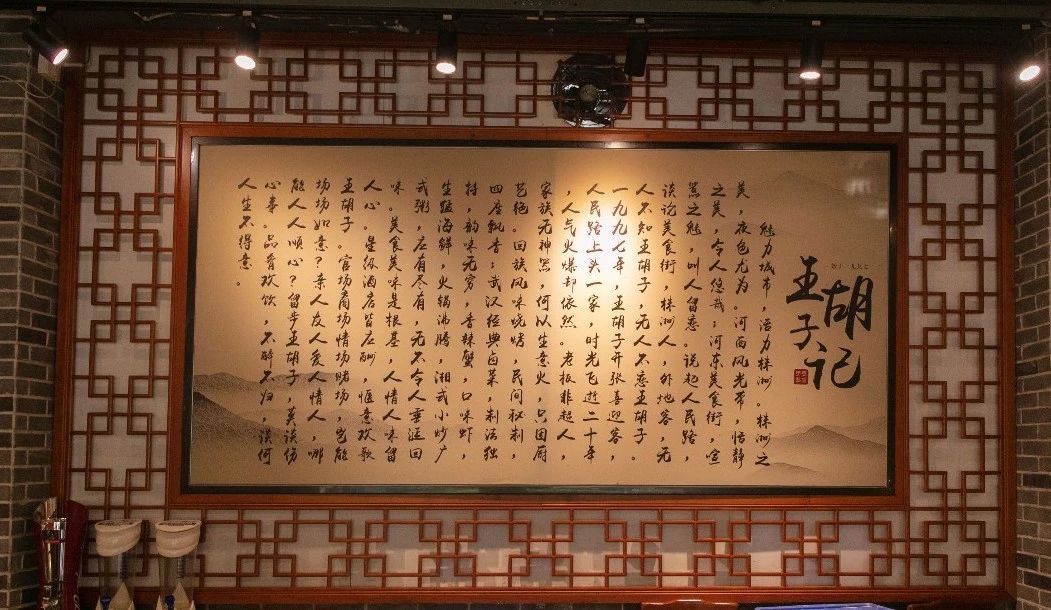 王胡子记
魅力城市,活力株洲。株洲之
美,夜色尤为。河西风光带,恬静
之美,令人悠哉;河东美食街,喧
嚣之魅,叫人留恋。说起人民路,
谈论美食街,株洲人,外地客,无
人不知王胡子,无人不恋王胡子。
一九九七年,王胡子开张喜迎客,
人民路上头一家,时光飞逝二十年
,人气火爆却依然。老板非超人,
家族无神器,何以生意火,只因厨
艺艳。回族风味烧烤,民间秘制,
四座飘香;武汉经典卤菜,制法独
特,韵味无穷,香辣蟹,口味虾,
生猛海鲜,火锅沸腾,湘式小炒广
式粥,应有尽有,无不令人垂涎回
味。美食美味是根基,人情人味留
人心。星级酒店皆应酬,惬意欢歌
王胡子。官场商场情场赌场,岂能
场场如意?亲人友人爱人情人,哪
能人人顺心?留步王胡子,莫谈伤
心事。品肴欢饮,不醉不归,谈何
人生不得意。